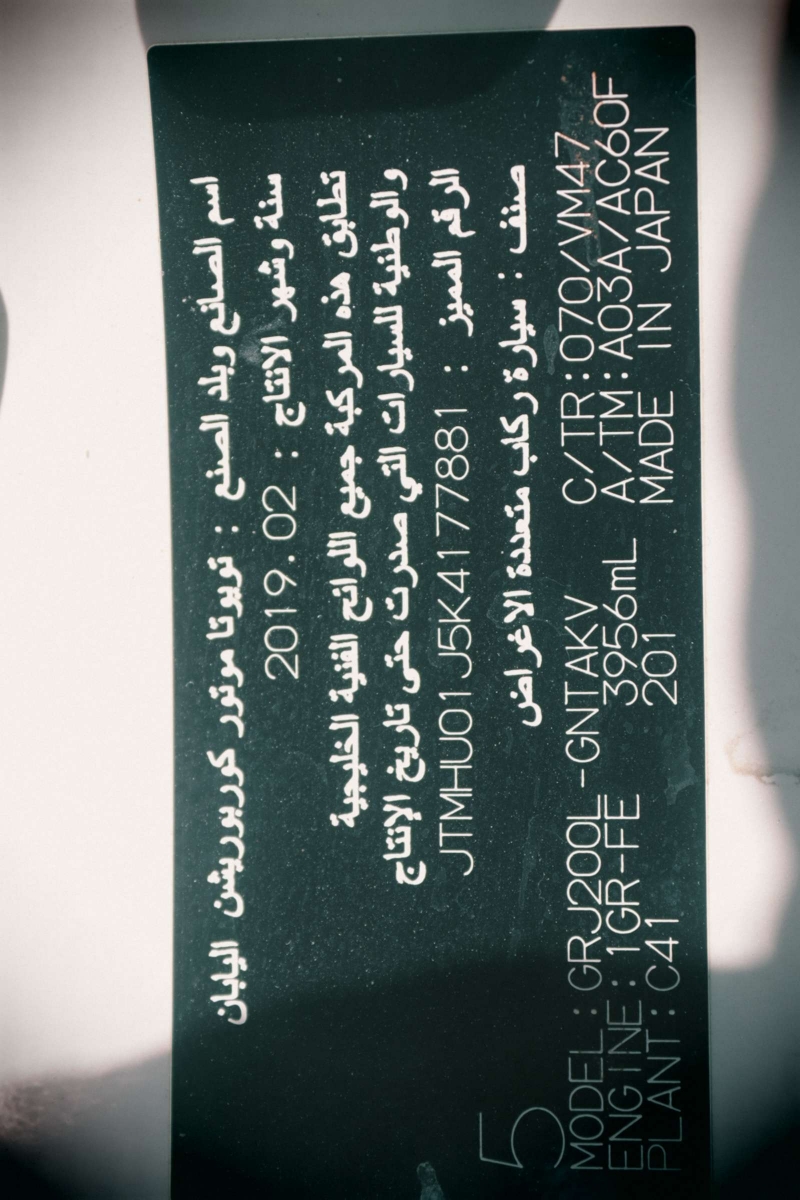 اسم الصانع وبلد الصنع : تويوتا موتور كوربوريشن اليابان
سنة وشهر الانتاج : 2019.02
تطابق هذه المركبة جميع اللوائح الفنية الخليجية
والوطنية للسيارات التي صدرت حتى تاريخ الإنتاج
الرقم المميز : JTMHU01J5K4177881
صنف : سيارة ركاب متعددة الاغراض
5
MODEL : GRJ200L-GNTAKV C/TR:070/VM47
ENGINE : 1GR-FE 3956mL A/TM:A03A/AC60F
PLANT : C41 201 MADE IN JAPAN